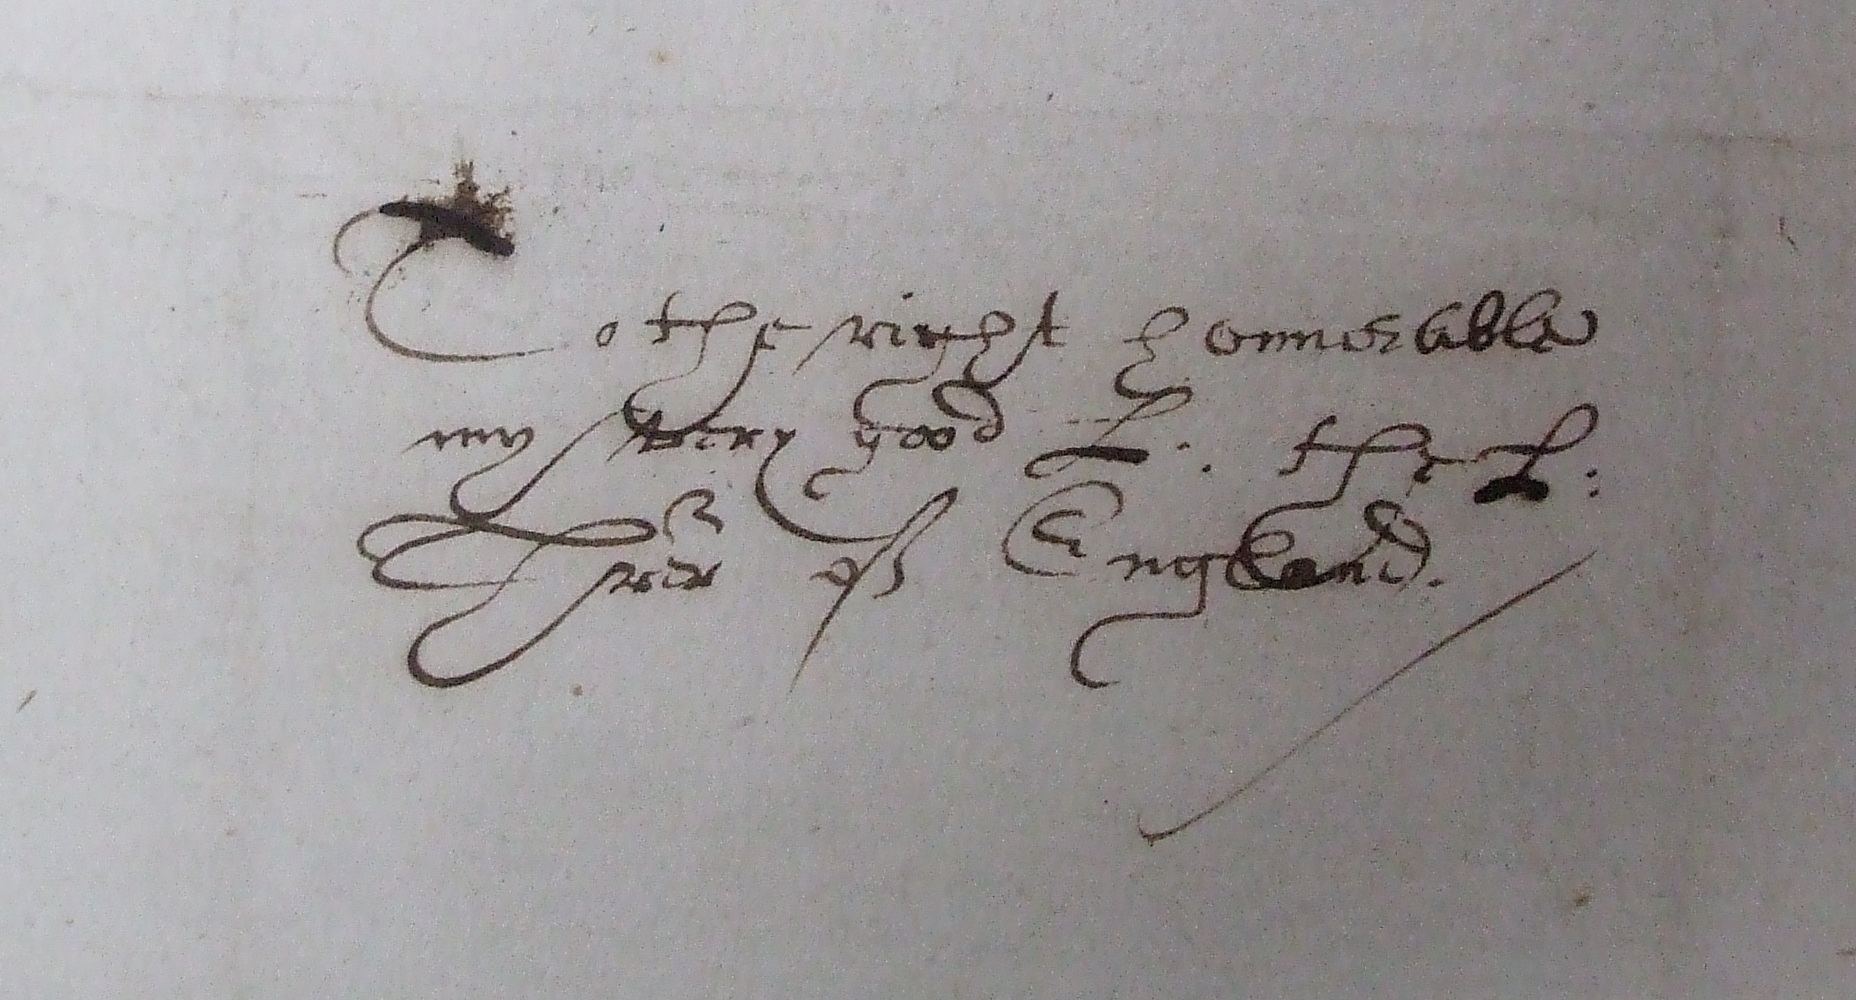 To the right honnorable
my very good L:. the L:
Threr of England.